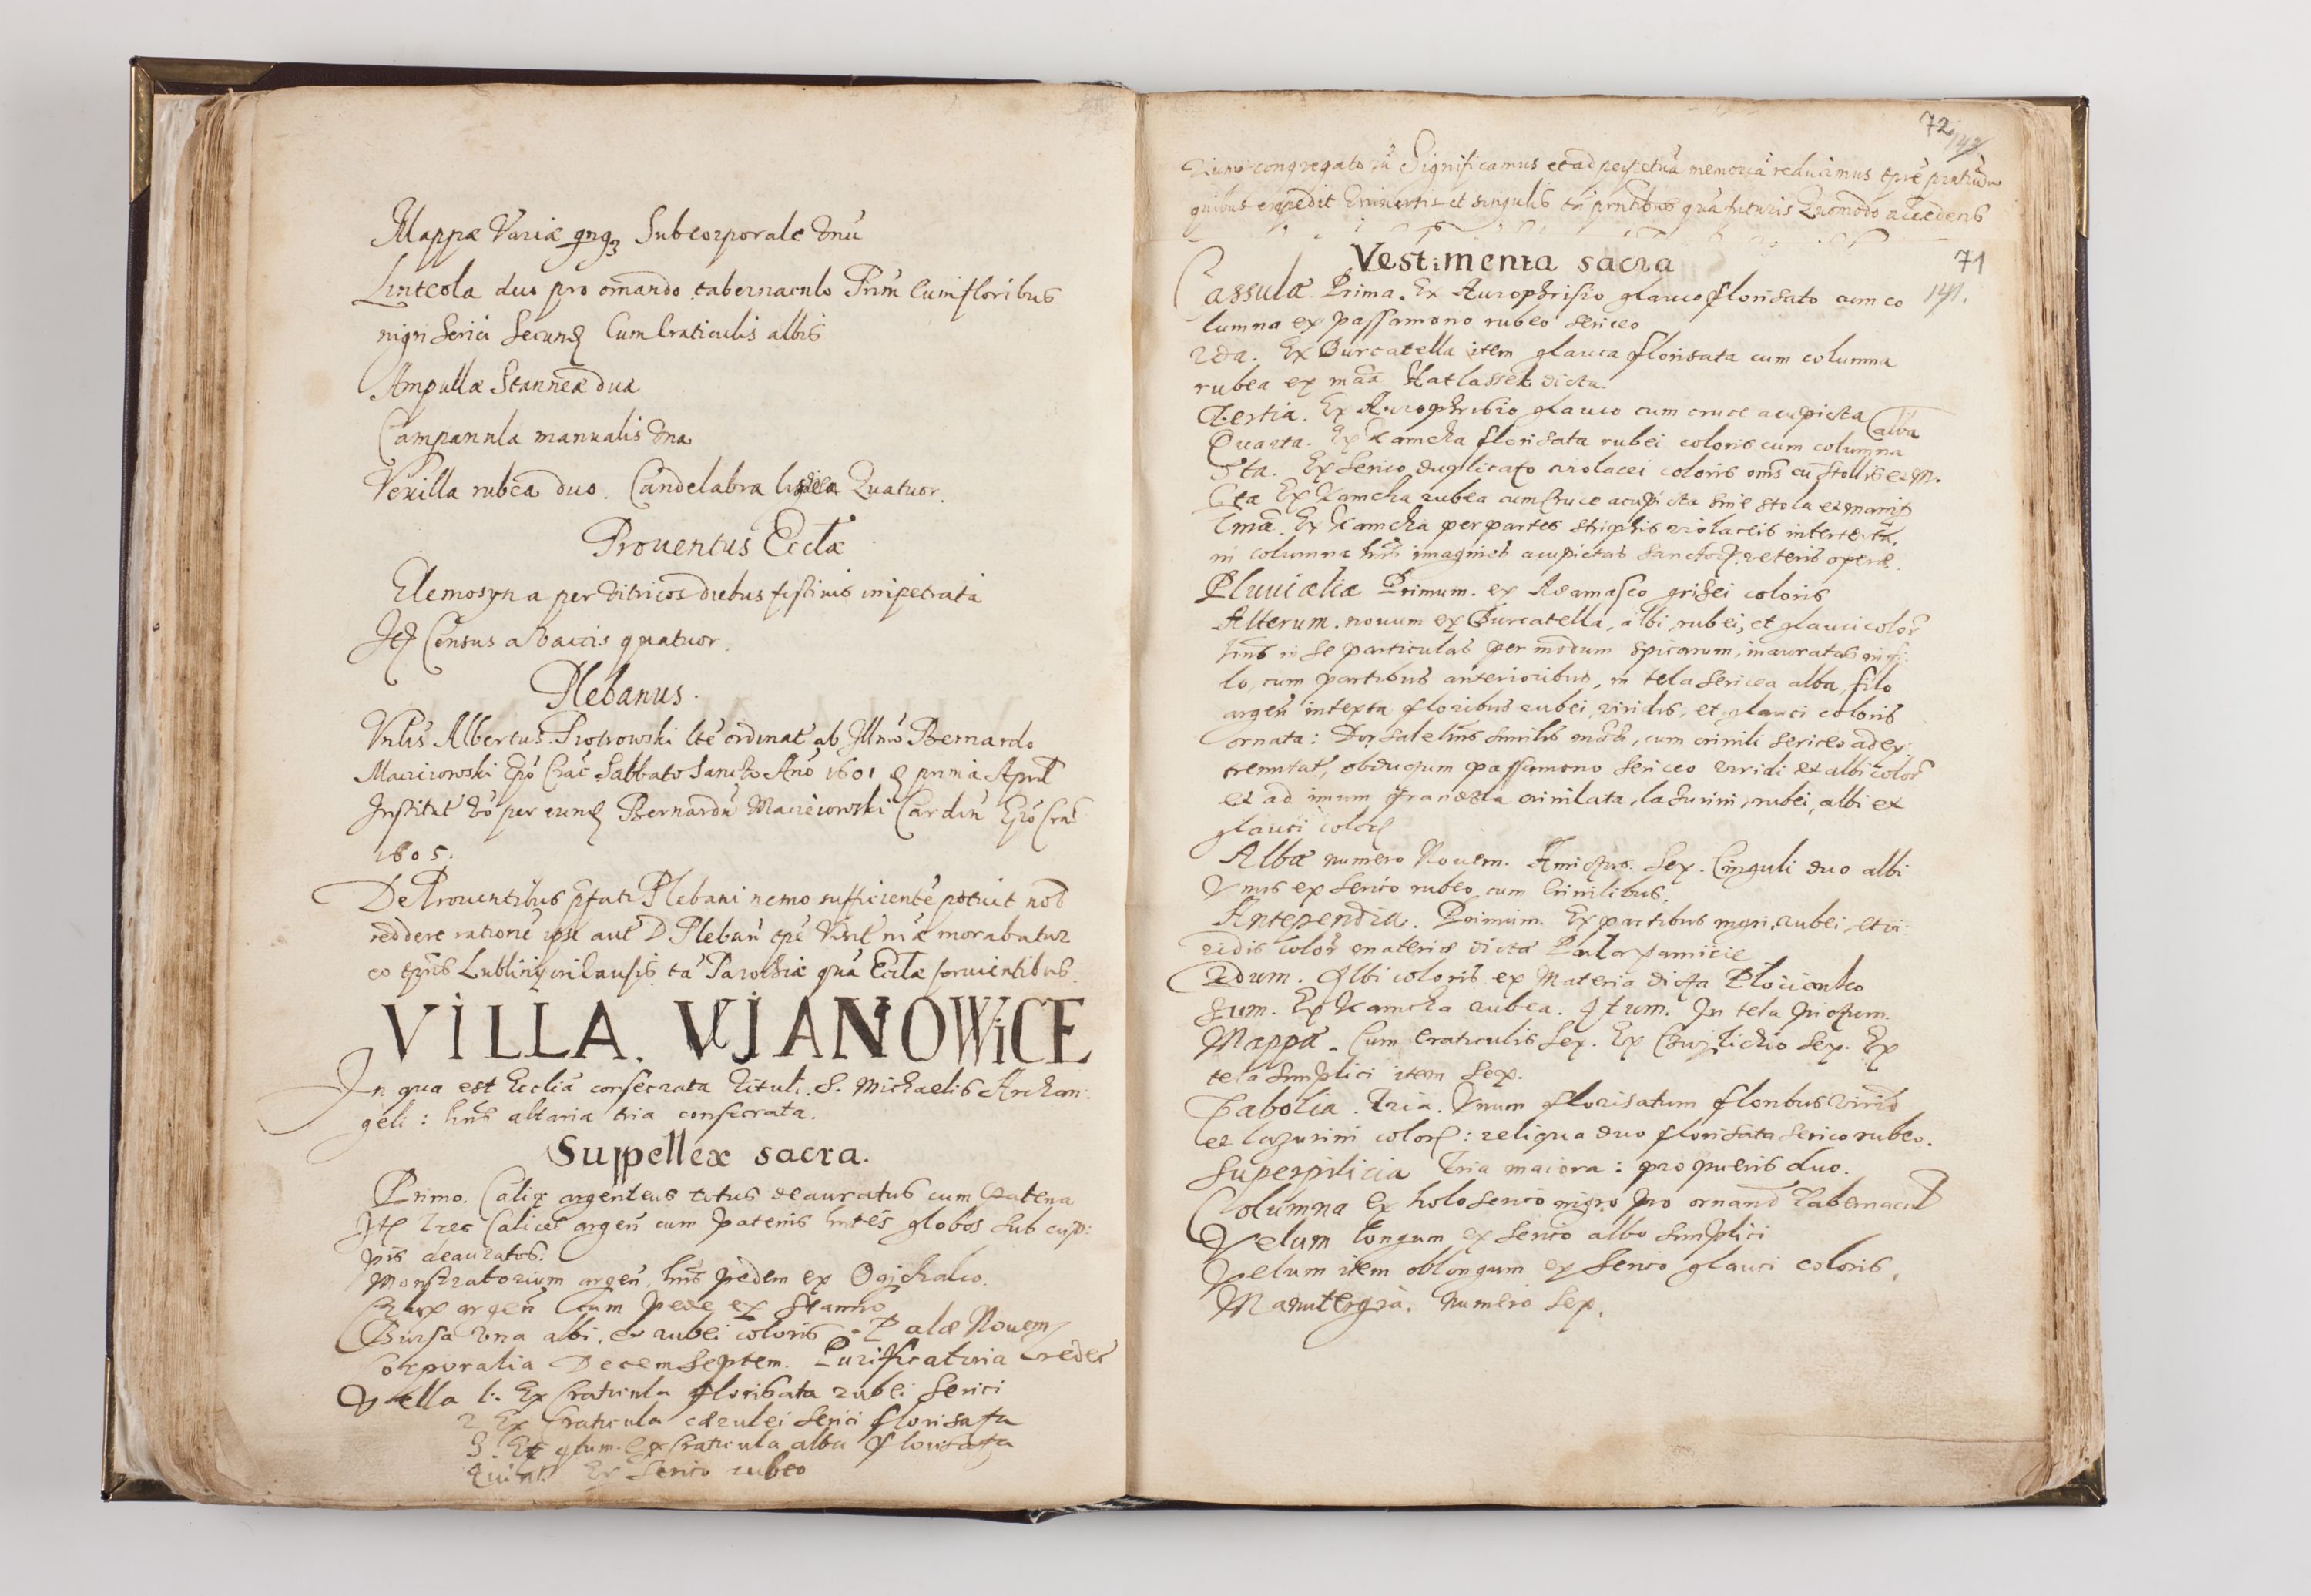 Mappæ Variæ qnqꝫ Subcorporale Vnũ
Linteola duo pro ornando tabernaculo Prim̃ cum floribus
nigri Serici Secund Cum Craticulis albis
Ampullæ Stanneæ duæ
Campanula manualis Vna
Vexilla rubea duo. Candelabra lignea Quatuor.
Prouentus Eccłæ
Elemosyna per Vitricos diebus festiuis impetrata
Census a Vaccis quatuor.
Plebanus.
Albertus Piotrowski ordinat ab Illmo Bernardo
Macieiowski Epõ Crac̃ Sabbato Sancto Año 1601 prima April
Institut Võ per eund Bernardũ Macieiowski Cardin Epõ Cra
1605.
De Prouentibus Plebani nemo sufficientẽ potuit nob
reddere rationẽ ipse aut D Plebañ tpẽ Visit nr̃æ morabatur
eo Lublini in causis tã Parochiæ quã Eccłæ seruientibus.
VILLA. VJANOWiCE
In qua est Ecclia consecrata tituli S. Michaelis Archan:
geli: hñs altaria tria consecrata.
Suppellex sacra.
Primo. Calix argenteus totus deauratus cum Patena
Tres Calices argen̄ cum patenis hñtes globos sub cup:
pis deauratos.
Monstratorium argen̄ hñs pedem ex
Crux argen̄ cum pede ex Stanno
Bursa vna albi, et rubei coloris. Palæ Nouem
Corporalia Decem Septem. Purificatoria tredec
Vella 1. Ex Craticula florisata rubei Serici
2 Ex Craticula cærulei Serici florisata
3. Et 4tum. Ex Craticula alba florisata
Quint. Ex Serico rubeo
72
congregato Significamus et ad perpetuã memoriã reducimus
quibus expedit Vniuersis et singulis tã pñtibus quã futuris Quomodo accedens
Vestimenta sacra
71
Cassulæ Prima. Ex Aurophrisio glauco florisato cum co
141.
lumna ex passamono rubeo sericeo
2da. Ex Burcatella item glauca florisata cum columna
rubea ex mãa Hatlassek dicta.
Tertia. Ex Aurophrisio glauco cum cruce acupicta
Quarta. Ex Kamcha florisata rubei coloris cum columna alba
5ta. Ex Serico duplicato violacei coloris oms̃ cũ Stollis et M.
6ta Ex Kamcha rubea cum Cruce acupicta sine stola et manip
7mã. Ex Kamcha per partes striphis violaceis intertexta,
in columna hñs imagines acupictas Sanctor veteris operæ.
Pluuialia Primum. ex Adamasco grisei coloris
Alterum. nouum ex Burcatella, albi, rubei, et glauci color̃
hñs in se particulas per modum spicarum, inauratas in fi:
lo, cum partibus anterioribus, in tela sericea alba, filo
argen̄ intexta floribus rubei, viridis, et glauci coloris
ornata: Dorsale hñs similis, cum crinili sericeo ad ex:
tremitat, obductum passamono sericeo viridi et albi color̃
et ad imum frandzla crinilata, lazurini, rubei, albi et
glauci color
Albæ numero Nouem. Amictus. Sex. Cinguli duo albi
Vnus ex Serico rubeo cum Crinilibus.
Antependia. Primum. Ex partibus nigri, rubei, et vi:
ridis color̃ materiæ dictæ
2dum. Albi coloris ex Materia dicta
3um. Ex Kamcha rubea. 4tum. In tela Pictum.
Mappæ. Cum Craticulis Sex. Ex Sex. Ex
tela simplici item Sex.
Tabolia. Tria. Vnum florisatum floribus virid
et lazurini color: reliqua duo florisata Serico rubeo.
Superpilicia Tria maiora: pro pueris duo.
Columna ex holoserico nigro pro ornand Tabernacul
Velum longum ex Serico albo simplici
Velum item oblongum ex Serico glauci coloris.
Manutergia. Numero Sex.